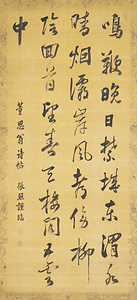 鳴鞭曉日禁城東渭水
晴烟灞岸風都傍柳
陰回首望春天樓閣五雲
中
董思翁詩帖 張照謹臨